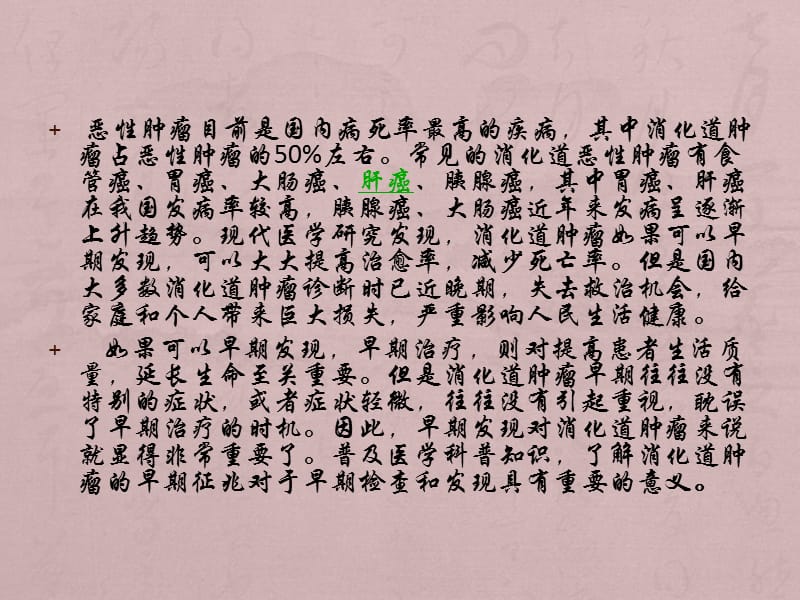 + 恶性肿瘤目前是国内病死率最高的疾病，其中消化道肿
瘤占恶性肿瘤的50%左右。常见的消化道恶性肿瘤有食
管癌、胃癌、大肠癌、肝癌、胰腺癌，其中胃癌、肝癌
在我国发病率较高，胰腺癌、大肠癌近年来发病呈逐渐
上升趋势。现代医学研究发现，消化道肿瘤如果可以早
期发现，可以大大提高治愈率，减少死亡率。但是国内
大多数消化道肿瘤诊断时已近晚期，失去救治机会，给
家庭和个人带来巨大损失，严重影响人民生活健康。
+ 如果可以早期发现，早期治疗，则对提高患者生活质
量，延长生命至关重要。但是消化道肿瘤早期往往没有
特别的症状，或者症状轻微，往往没有引起重视，耽误
了早期治疗的时机。因此，早期发现对消化道肿瘤来说
就显得非常重要了。普及医学科普知识，了解消化道肿
瘤的早期征兆对于早期检查和发现具有重要的意义。